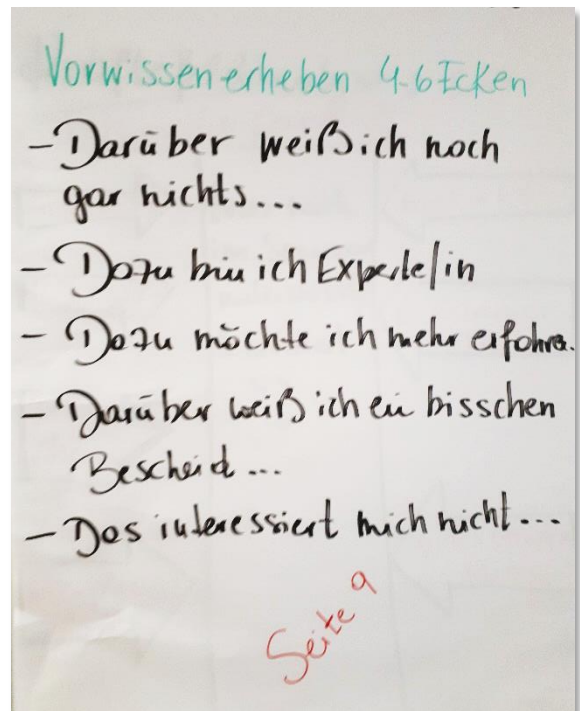 Vorwissen erheben 4-6 Ecken
- Darüber weiß ich noch
gar nichts...
- Dazu bin ich Experte/in
- Dazu möchte ich mehr erfahren.
- Darüber weiß ich ein bisschen
Bescheid...
- Das interessiert mich nicht...
Seite 9